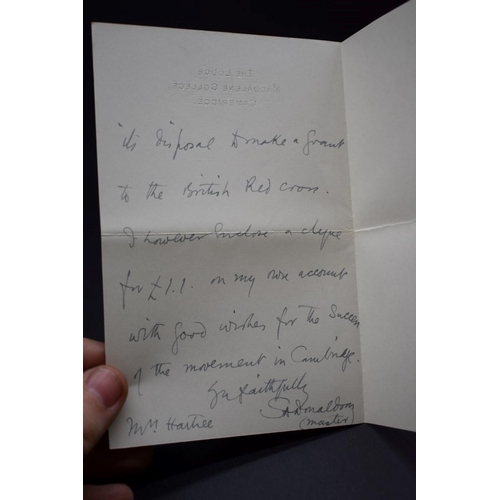 THE LODGE,
MAGDALENE COLLEGE,
CAMBRIDGE.
its disposal to make a grant
to the British Red Cross.
I however enclose a cheque
for £1.1. on my own account
with good wishes for the Success
of the movement in Cambridge.
Yrs faithfully
S A Donaldson
(master)
Mrs Hartree